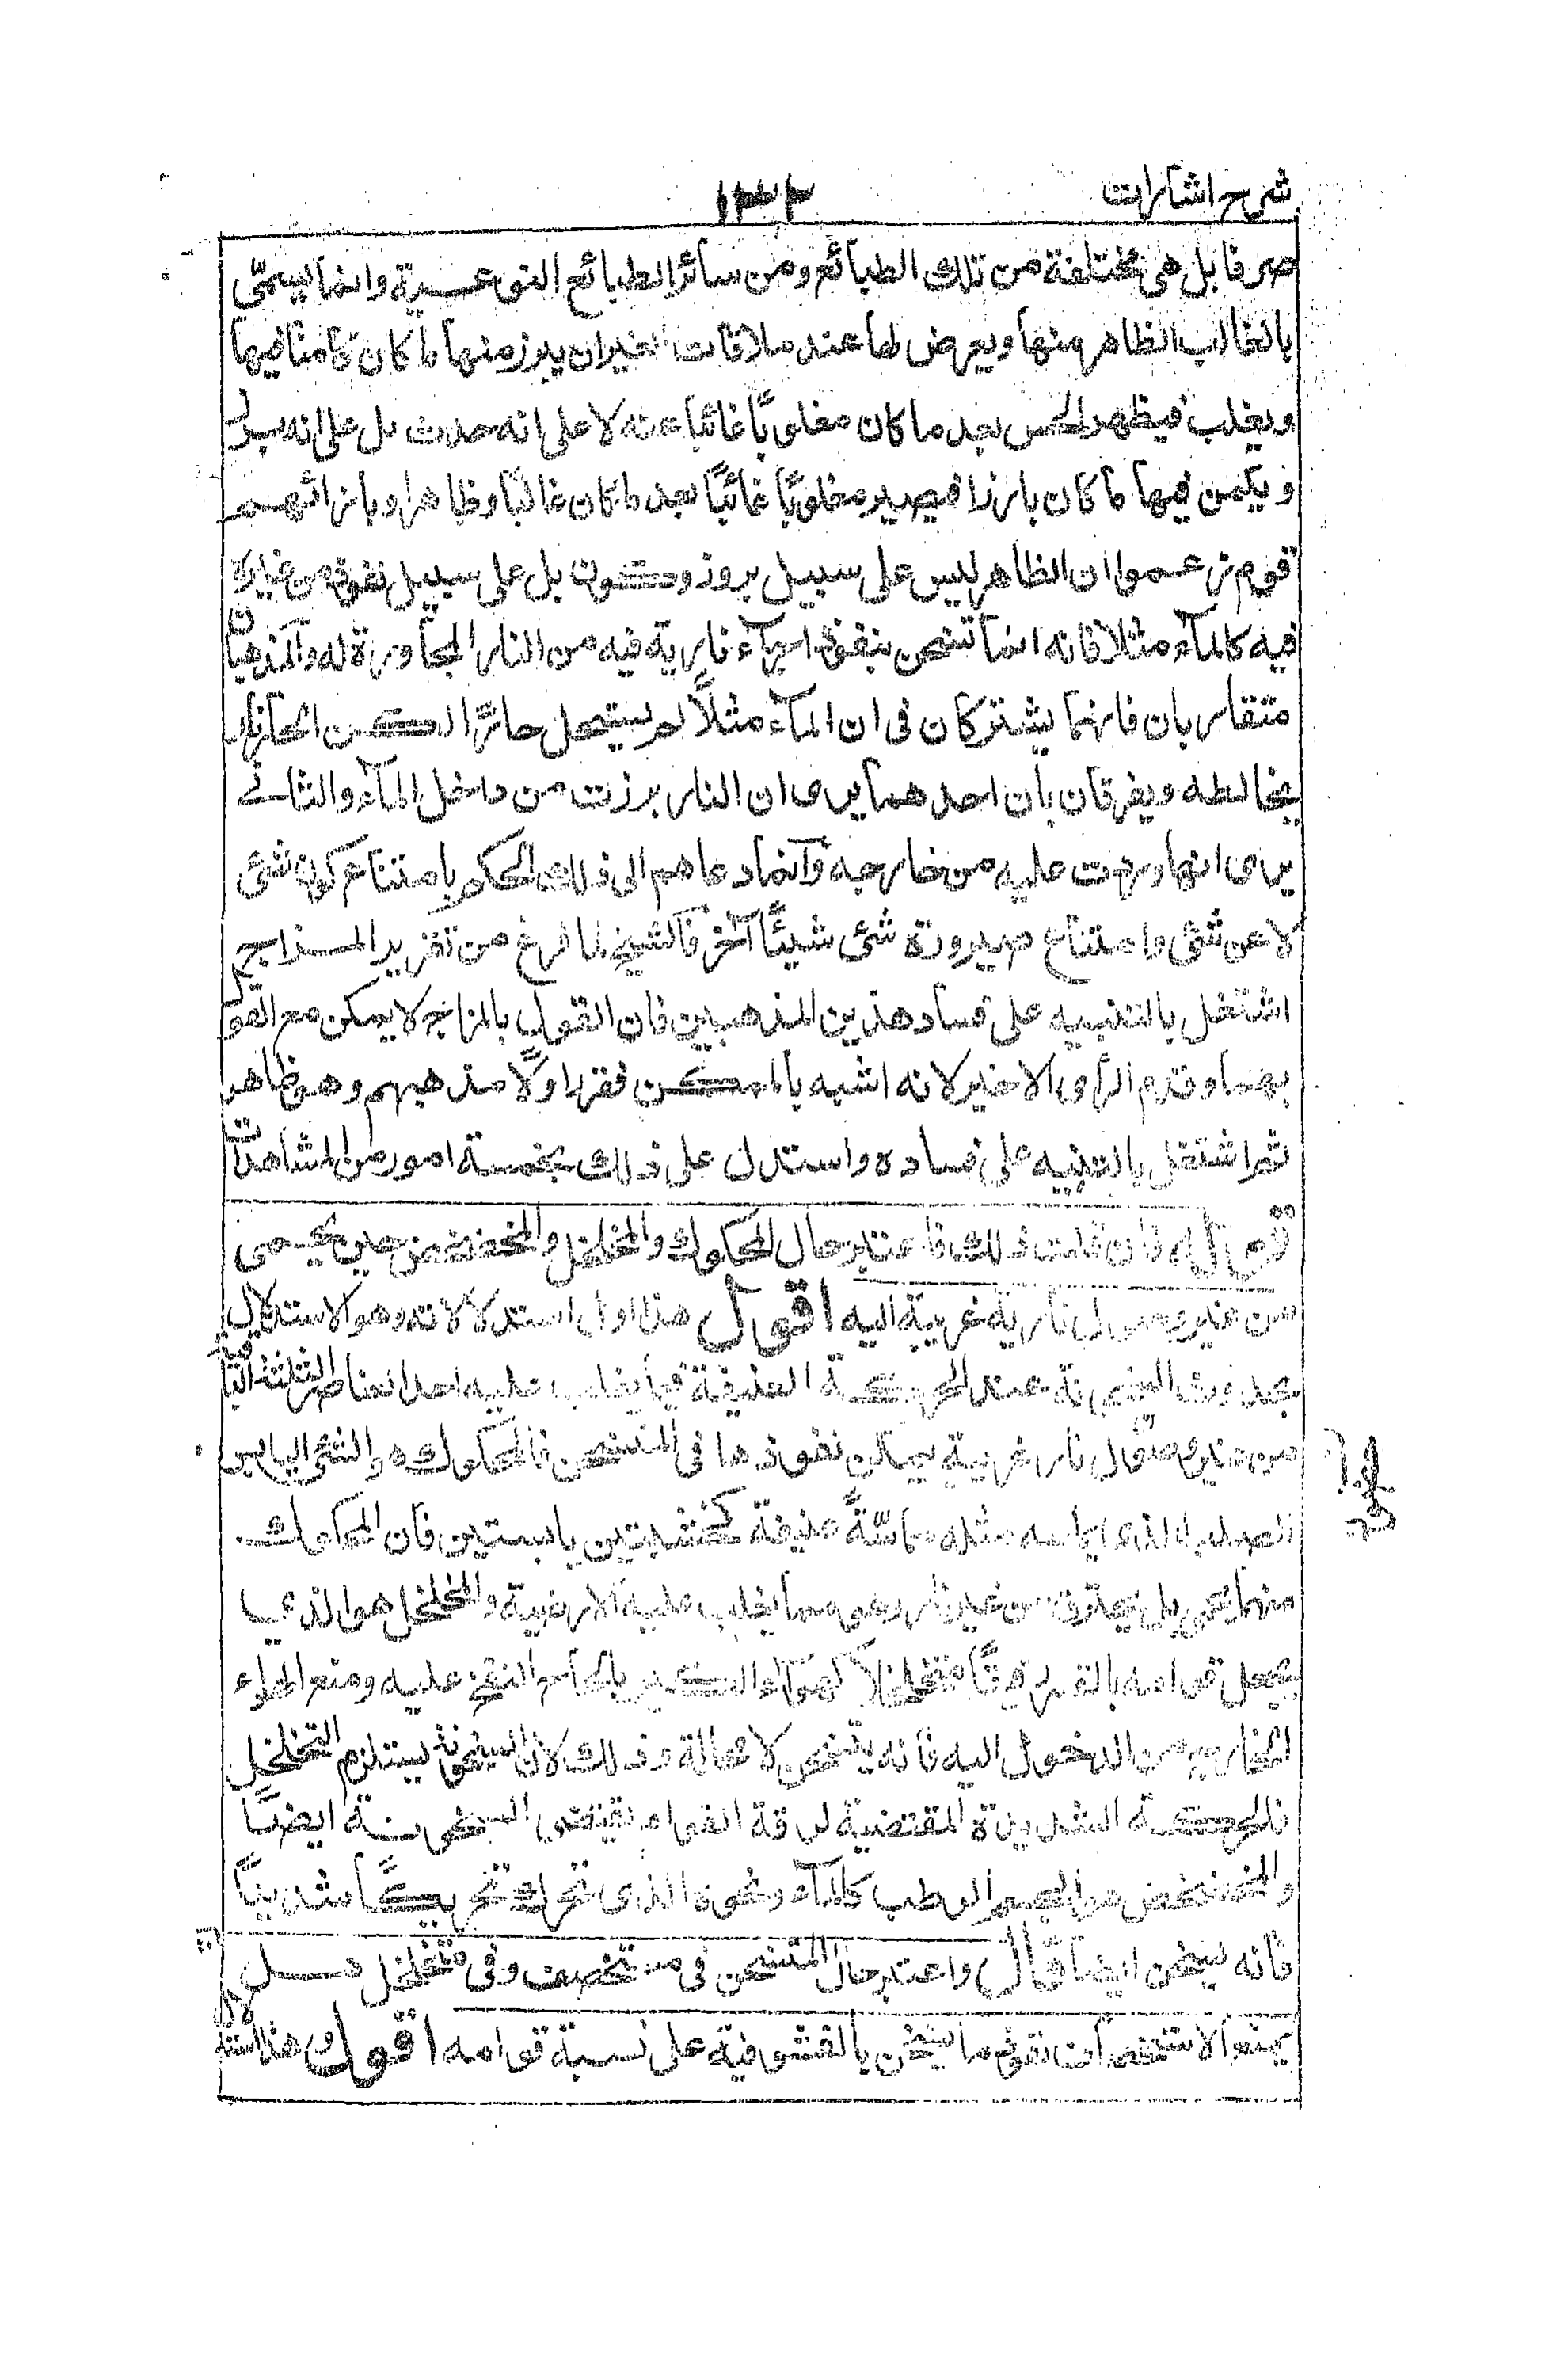 شرح اشارات ١٣٢
صرفا بل هى مختلفة من تلك الطبائع ومن سائر الطبائع النوعية وانما يسمّى
بالغالب الظاهر منها ويعرض لها عند ملاقات الغير ان يبرز منها ما كان كامنا فيها
ويغلب فيظهر للحس بعد ما كان مغلوبًا غائبًا عنه لا على انه حدث بل على انه برز
ويكمن فيها ما كان بارزا فيصير مغلوبًا غائبًا بعد ما كان غالبًا وظاهرا وبازائهم
قوم زعموا ان الظاهر ليس على سبيل بروز وكمون بل على سبيل نفوذ من غيره
فيه كالمآء مثلا فانه انما تتسخن بنفوذ اجزاء نارية فيه من النار المجاورة له والمذهبان
متقاربان فانهما يشتركان فى ان المآء مثلاً لم يستحل حارًا لكن الحار نار
يخالطه ويفرقان بان احدهما يرى ان النار برزت من داخل المآء والثانى
يرى انها وردت عليه من خارجه وانما دعاهم الى ذلك الحكم بامتناع كون شئ
لا عن شئ وامتناع صيرورة شئ شيئًا آخر فالشيخ لما فرغ من تقرير المزاج
اشتغل بالتنبيه على فساد هذين المذهبين فان القول بالمزاج لا يمكن مع القول
بهما وقدم الرأى الاخير لانه اشبه بالممكن فقرر اولًا مذهبهم وهو ظاهر
ثم اشتغل بالتنبيه على فساده واستدل على ذلك بخمسة امور من المشاهدات
قوله فان قلت ذلك فاعتبر حال المحكوك والمخلخل والمخضخض حين يحمى
من غير وصول نارية غريبة اليه اقول هذا اول استدلالاته وهو الاستدلال
بحدوث السخونة عند الحركة العنيفة فيما يغلب عليه احد العناصر الثلثة الباقية
من غير حصول نار غريبة يمكن نفوذها فى المتسخن فالمحكوك هو الشئ اليابس
الصلب الذى يماسه مثله مماسّةً عنيفة كخشبتين يابستين فان المحكوك
منهما يحمى بل يحترق من غير نار وهى مما يغلب عليه الارضية والمخلخل هو الذى
يجعل قوامه بالقسر رقيقًا متخلخلاً كهوآء الكير بالحاح النفخ عليه ومنع الهواء
الخارجى من الدخول اليه فانه يتسخن لا محالة وذلك لان السخونة يستلزم التخلخل
فالحركة الشديدة المقتضية لرقة القوام يقتضى السخونة ايضًا
والمخضخض هو الجسم الرطب كالمآء ونحوه الذى تحرك تحريكًا شديدًا
فانه يتسخن ايضا قال واعتبر حال المتسخن فى مستحصف وفى متخلخل هل
يمنع الاستحصاف نفوذ ما يسخن بالفشو فيه على نسبة قوامه اقول وهذا